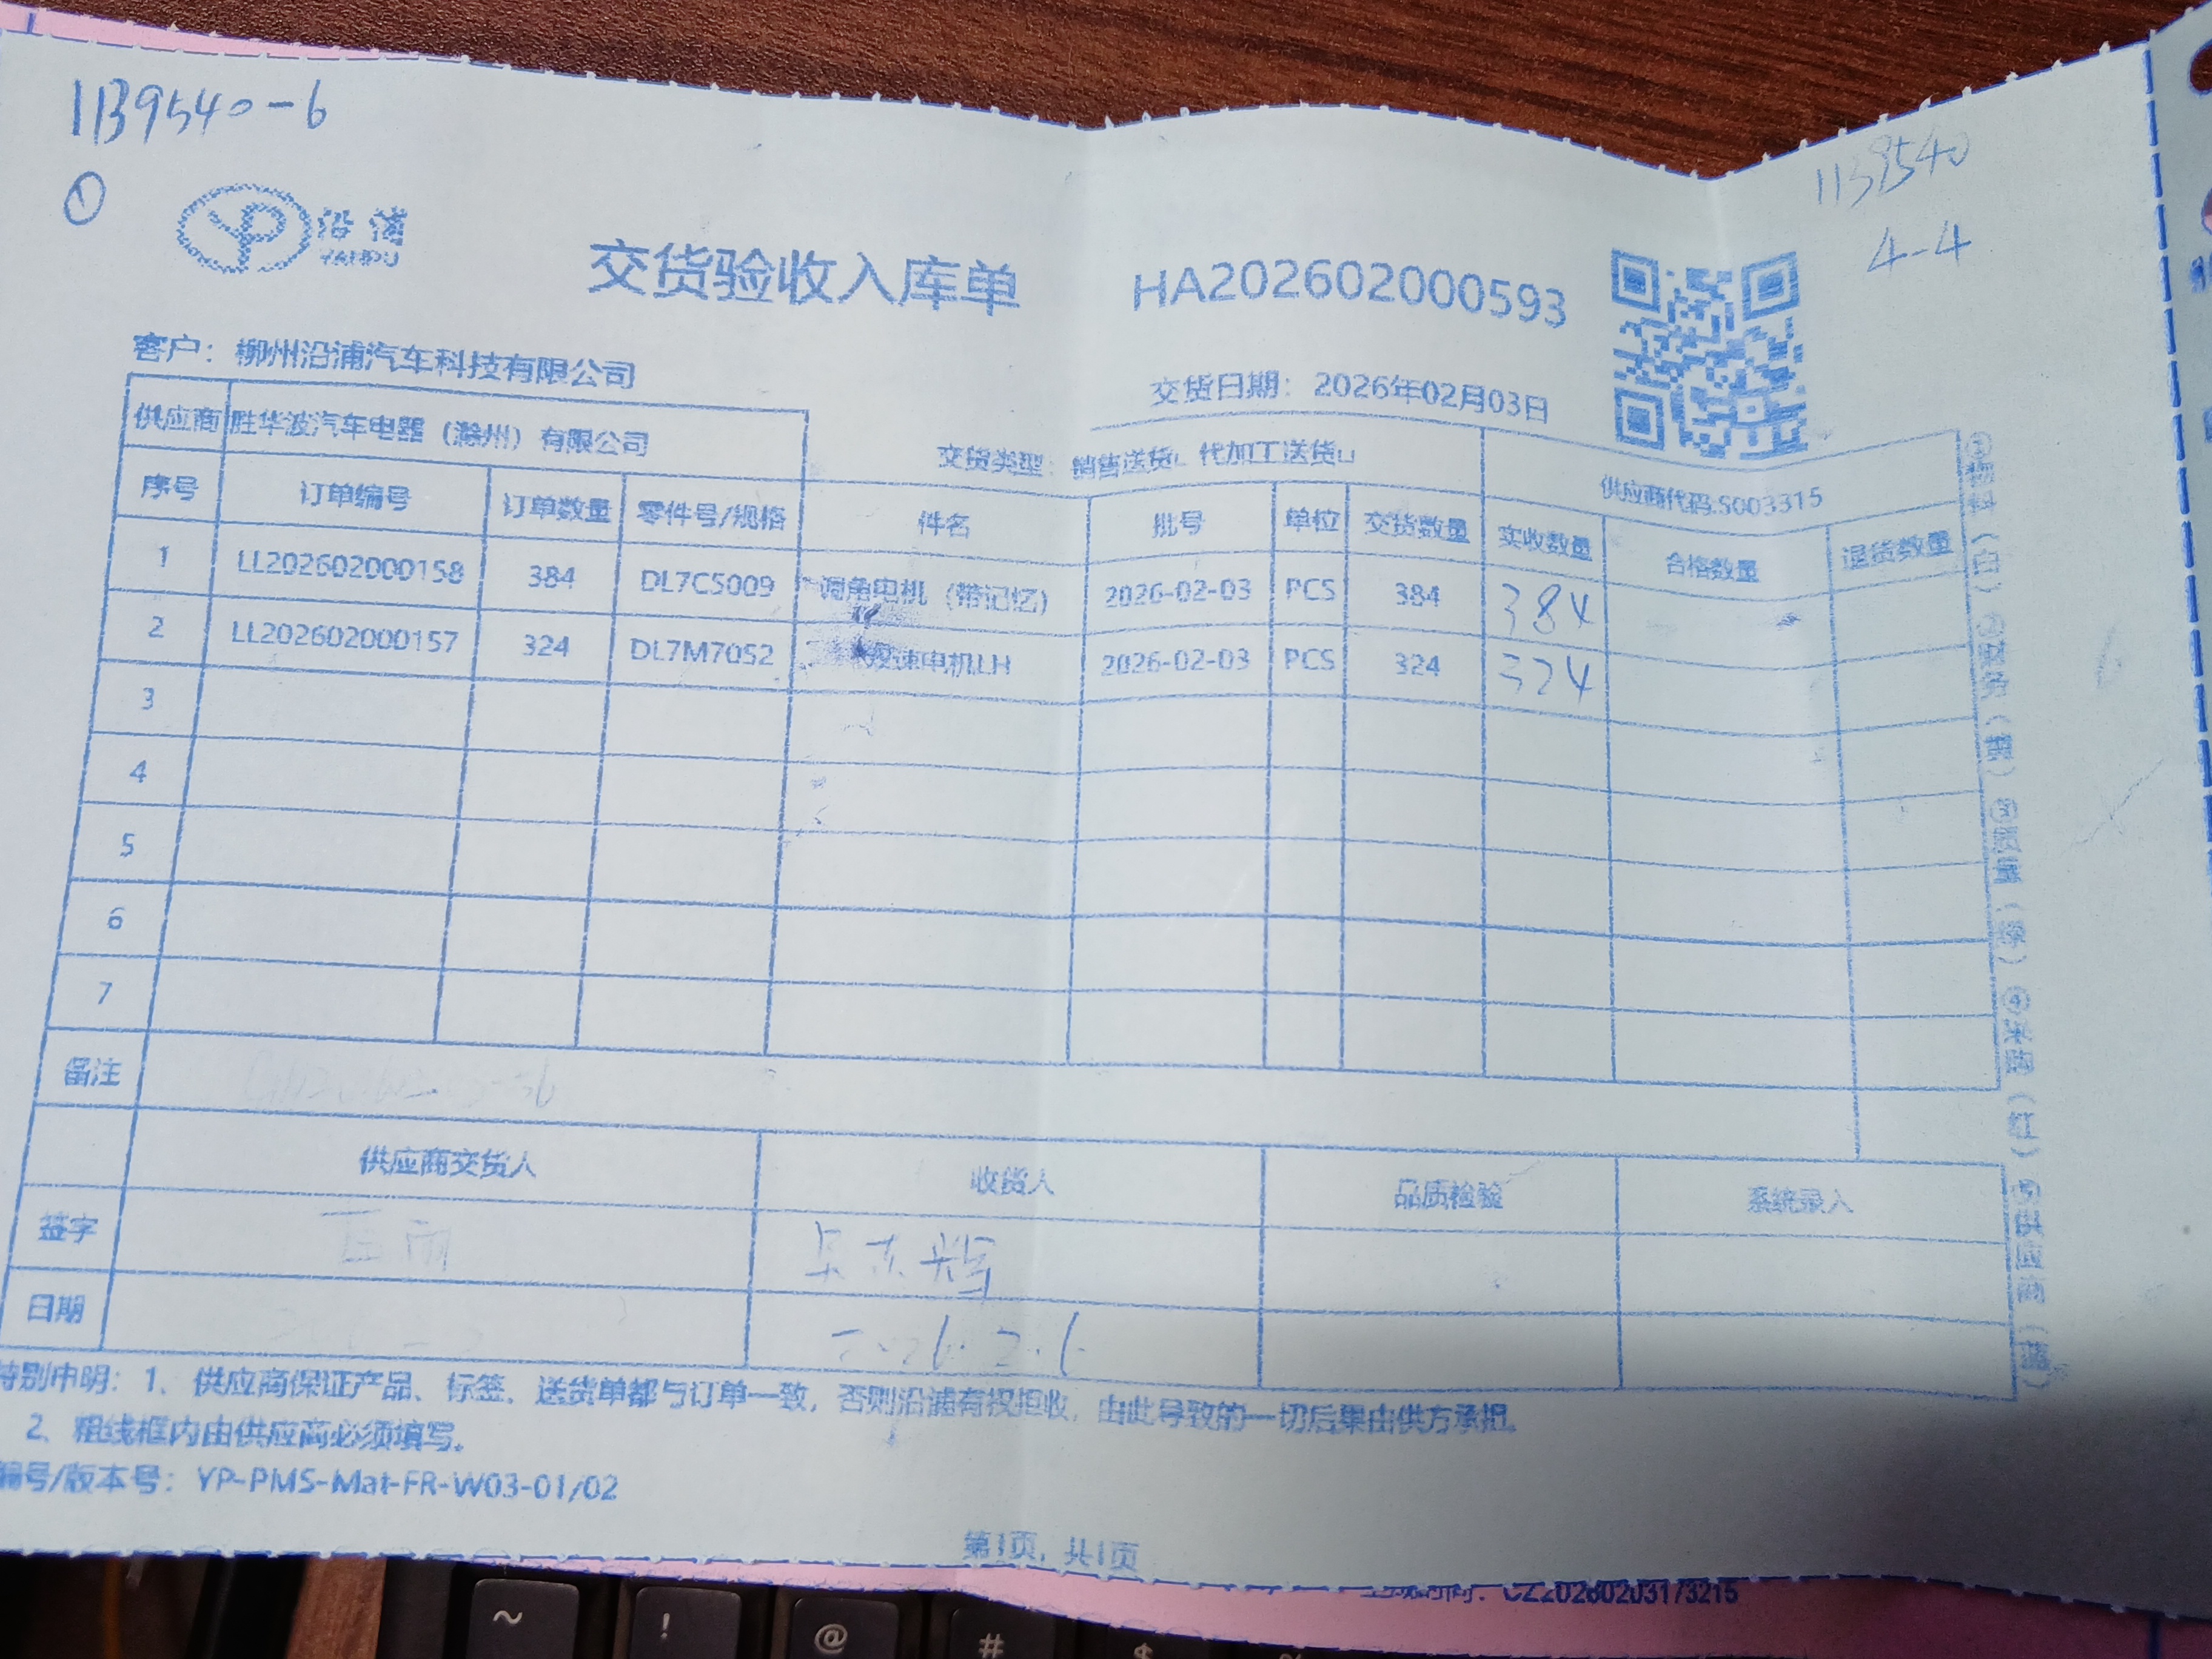 1139540-6
①
沿浦
YANPU
1139540
4-4
交货验收入库单 HA202602000593
客户：柳州沿浦汽车科技有限公司
交货日期：2026年02月03日
供应商 胜华波汽车电器（滁州）有限公司
交货类型：销售送货 代加工送货
供应商代码:S003315
序号 订单编号 订单数量 零件号/规格 件名 批号 单位 交货数量 实收数量 合格数量 退货数量
1 LL202602000158 384 DL7C5009 调角电机（带记忆） 2026-02-03 PCS 384 384
2 LL202602000157 324 DL7M7052 电机LH 2026-02-03 PCS 324 324
3
4
5
6
7
备注
供应商交货人 收货人 品质检验 系统录入
签字
日期 2026.2.6
特别申明：1、供应商保证产品、标签、送货单都与订单一致，否则沿浦有权拒收，由此导致的一切后果由供方承担。
2、粗线框内由供应商必须填写。
编号/版本号：YP-PMS-Mat-FR-W03-01/02
第1页，共1页
①物料（白）②财务（粉）③质量（绿）④采购（红）⑤供应商（蓝）
CZ20260203173215
~ ! @ # $